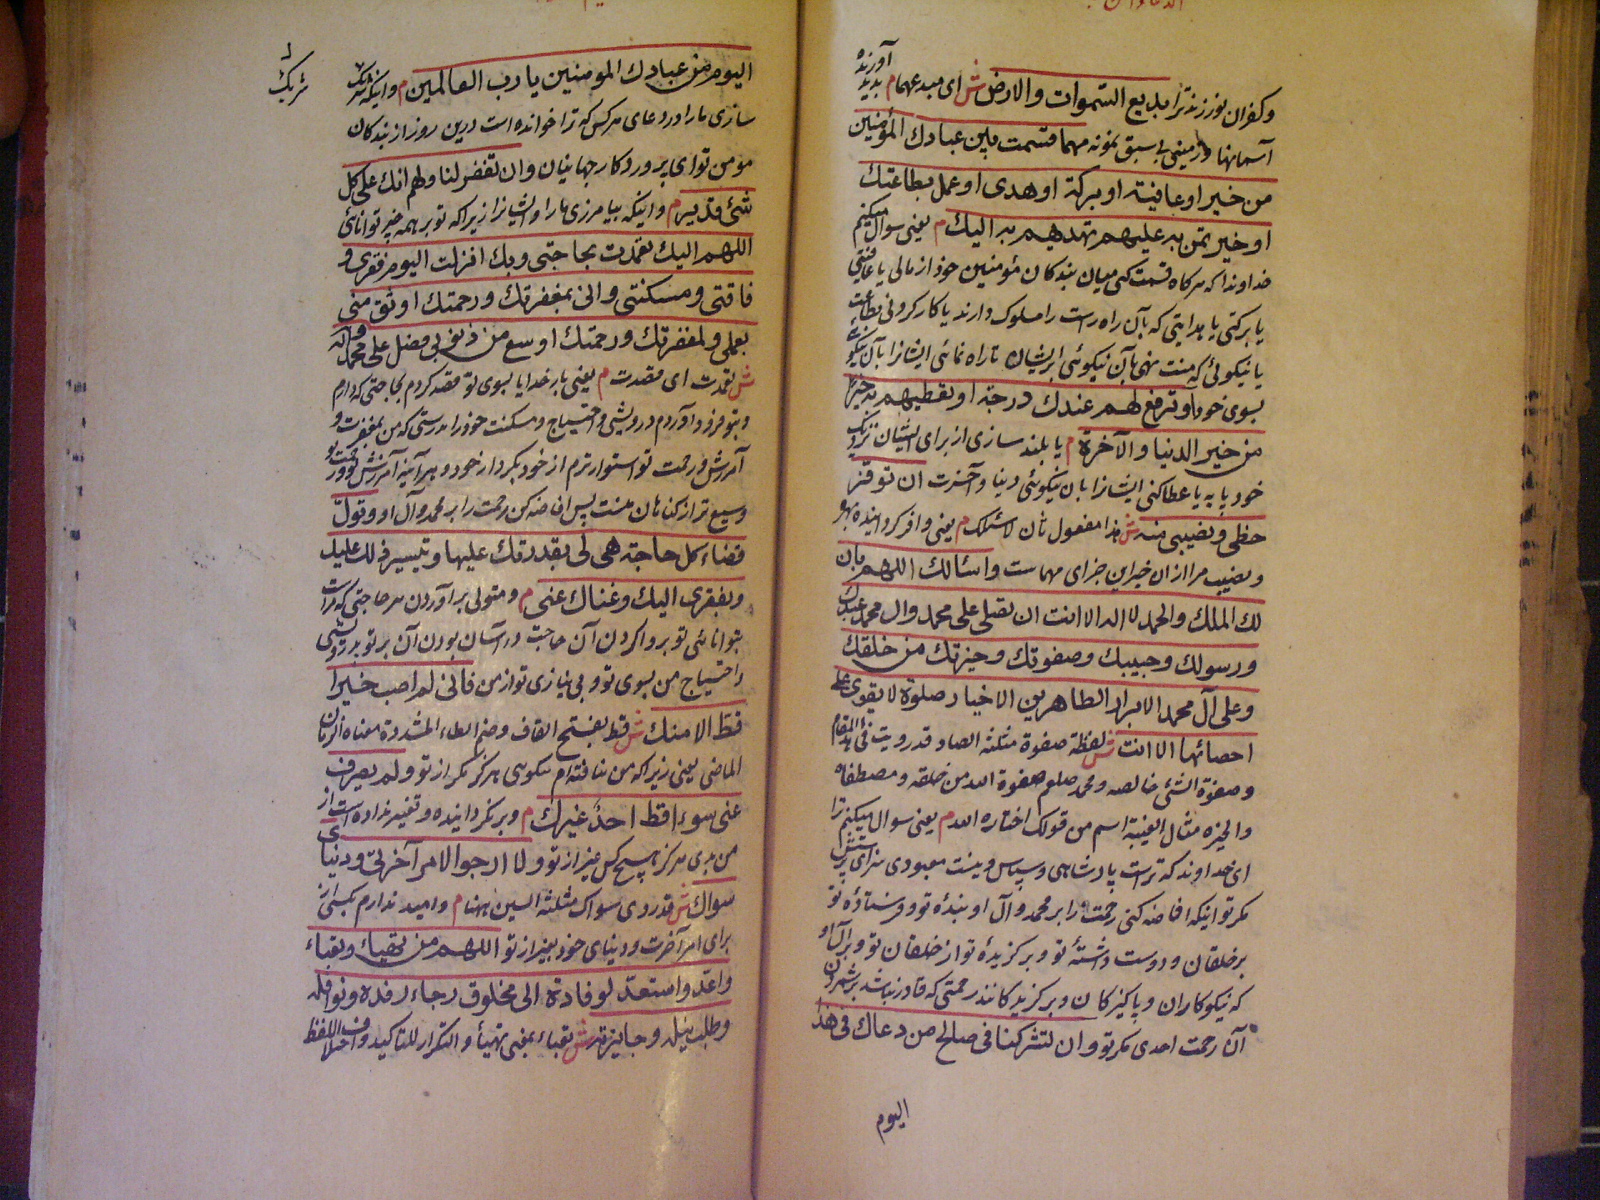 وكفران نورزند ترا بديع السموات والارض ش اى مبدعهما م پديد آورنده
آسمانها وزمينى بى سبق نمونه مهما قسمت بين عبادك المؤمنين
من خير او عافية او بركة او هدى او عمل بطاعتك
او خير تمن به عليهم تهديهم به اليك م يعنى سوال ميكنم
خداوندا كه هر كاه قسمت كنى ميان بندكان مؤمنين خود از مالى يا عافيتى
يا بركتى يا هدايتى كه بآن راه راست را سلوك دارند يا كار كردنى بطاعت
يا نيكوئى كه منت نهى بآن نيكوئى بر ايشان تا راه نمائى ايشانرا بآن نيكوئى
بسوى خود او ترفع لهم عندك درجة او تعطيهم به خيرا
من خير الدنيا والآخرة م يا بلند سازى از براى ايشان نزديك
خود پايه يا عطا كنى ايشانرا بان نيكوئى دنيا و آخرت ان توفر
حظى ونصيبى منه ش هذا مفعول ثان لاسئلك م يعنى وافر كردانيده بهره
ونصيب مرا از ان خير اين جزاى مهماست واسألك اللهم بان
لك الملك والحمد لا اله الا انت ان تصلى على محمد وال محمد عبدك
ورسولك وحبيبك وصفوتك وخيرتك من خلقك
وعلى آل محمد الابرار الطاهرين الاخيار صلوة لا يقوى على
احصائها الا انت ش لفظة صفوة مثلثة الصاد قد رويت فى هذا المقام
وصفوة الشئ خالصه ومحمد صلعم صفوة الله من خلقه ومصطفاه
والخيرة مثال العنبة اسم من قولك اختاره الله م يعنى سوال ميكنم ترا
اى خداوند كه تراست پادشاهى وسپاس ونيست معبودى سزاى پرستش
مكر تو اينكه افاضه كنى رحمت را بر محمد وآل او بنده تو وفرستاده تو
بر خلقان ودوست داشته تو وبركزيده تو از خلقان تو وبر آل او
كه نيكوكاران وپاكيزكان وبركزيدكانند رحمتى كه قادر نباشد بر شمردن
آن رحمت احدى مكر تو وان تشركنا فى صالح من دعاك فى هذا
اليوم
اليوم من عبادك المؤمنين يا رب العالمين م واينكه شريك
شريك
سازى ما را در دعاى هر كس كه ترا خوانده است درين روز از بندكان
مومن تو اى پروردكار جهانيان وان تغفر لنا ولهم انك على كل
شئ قدير م واينكه بيامرزى ما را وايشانرا زيرا كه تو بر همه چيز توانائى
اللهم اليك تعمدت بحاجتى وبك انزلت اليوم فقرى و
فاقتى ومسكنتى وانى بمغفرتك ورحمتك اوثق منى
بعملى ولمغفرتك ورحمتك اوسع من ذنوبى فصل على محمد وآله
ش تعمدت اى قصدت م يعنى بار خدايا بسوى تو قصد كردم بحاجتى كه دارم
وبتو فرود آوردم درويشى واحتياج ومسكنت خود را بدرستى كه من بمغفرت و
آمرزش ورحمت تو استوارترم از خود بكردار خود وهر آينه آمرزش تو ورحمت تو
وسيع تر از كناهان منست پس افاضه كن رحمت را بر محمد وآل او وتول
قضاء كل حاجة هى لى بقدرتك عليها وتيسير ذلك عليك
وبفقرى اليك وغناك عنى م ومتولى بر آوردن هر حاجتى كه مراست
بتوانائى تو بر روا كردن آن حاجت و آسان بودن آن بر تو بدرويشى
واحتياج من بسوى تو وبى نيازى تو از من فانى لم اصب خيرا
قط الا منك ش قط بفتح القاف وضم الطاء المشددة معناه الزمان
الماضى يعنى زيرا كه من نيافته ام نيكويى هركز مكر از تو ولم يصرف
عنى سوءا قط احد غيرك م وبر نكردانيده وتغيير نداده است از
من بدى هركز هيچ كس غير از تو ولا ارجو لامر آخرتى ودنياى
سواك ش قد روى سواك مثلثة السين ههنا م واميد ندارم بكسى از
براى امر آخرت ودنياى خود بغير از تو اللهم من تهيأ وتعبأ
واعد واستعد لوفادة الى مخلوق رجاء رفده ونوافله
وطلب نيله وجايزته ش تعباء بمعنى تهيأ والتكرار للتاكيد واختلاف اللفظ